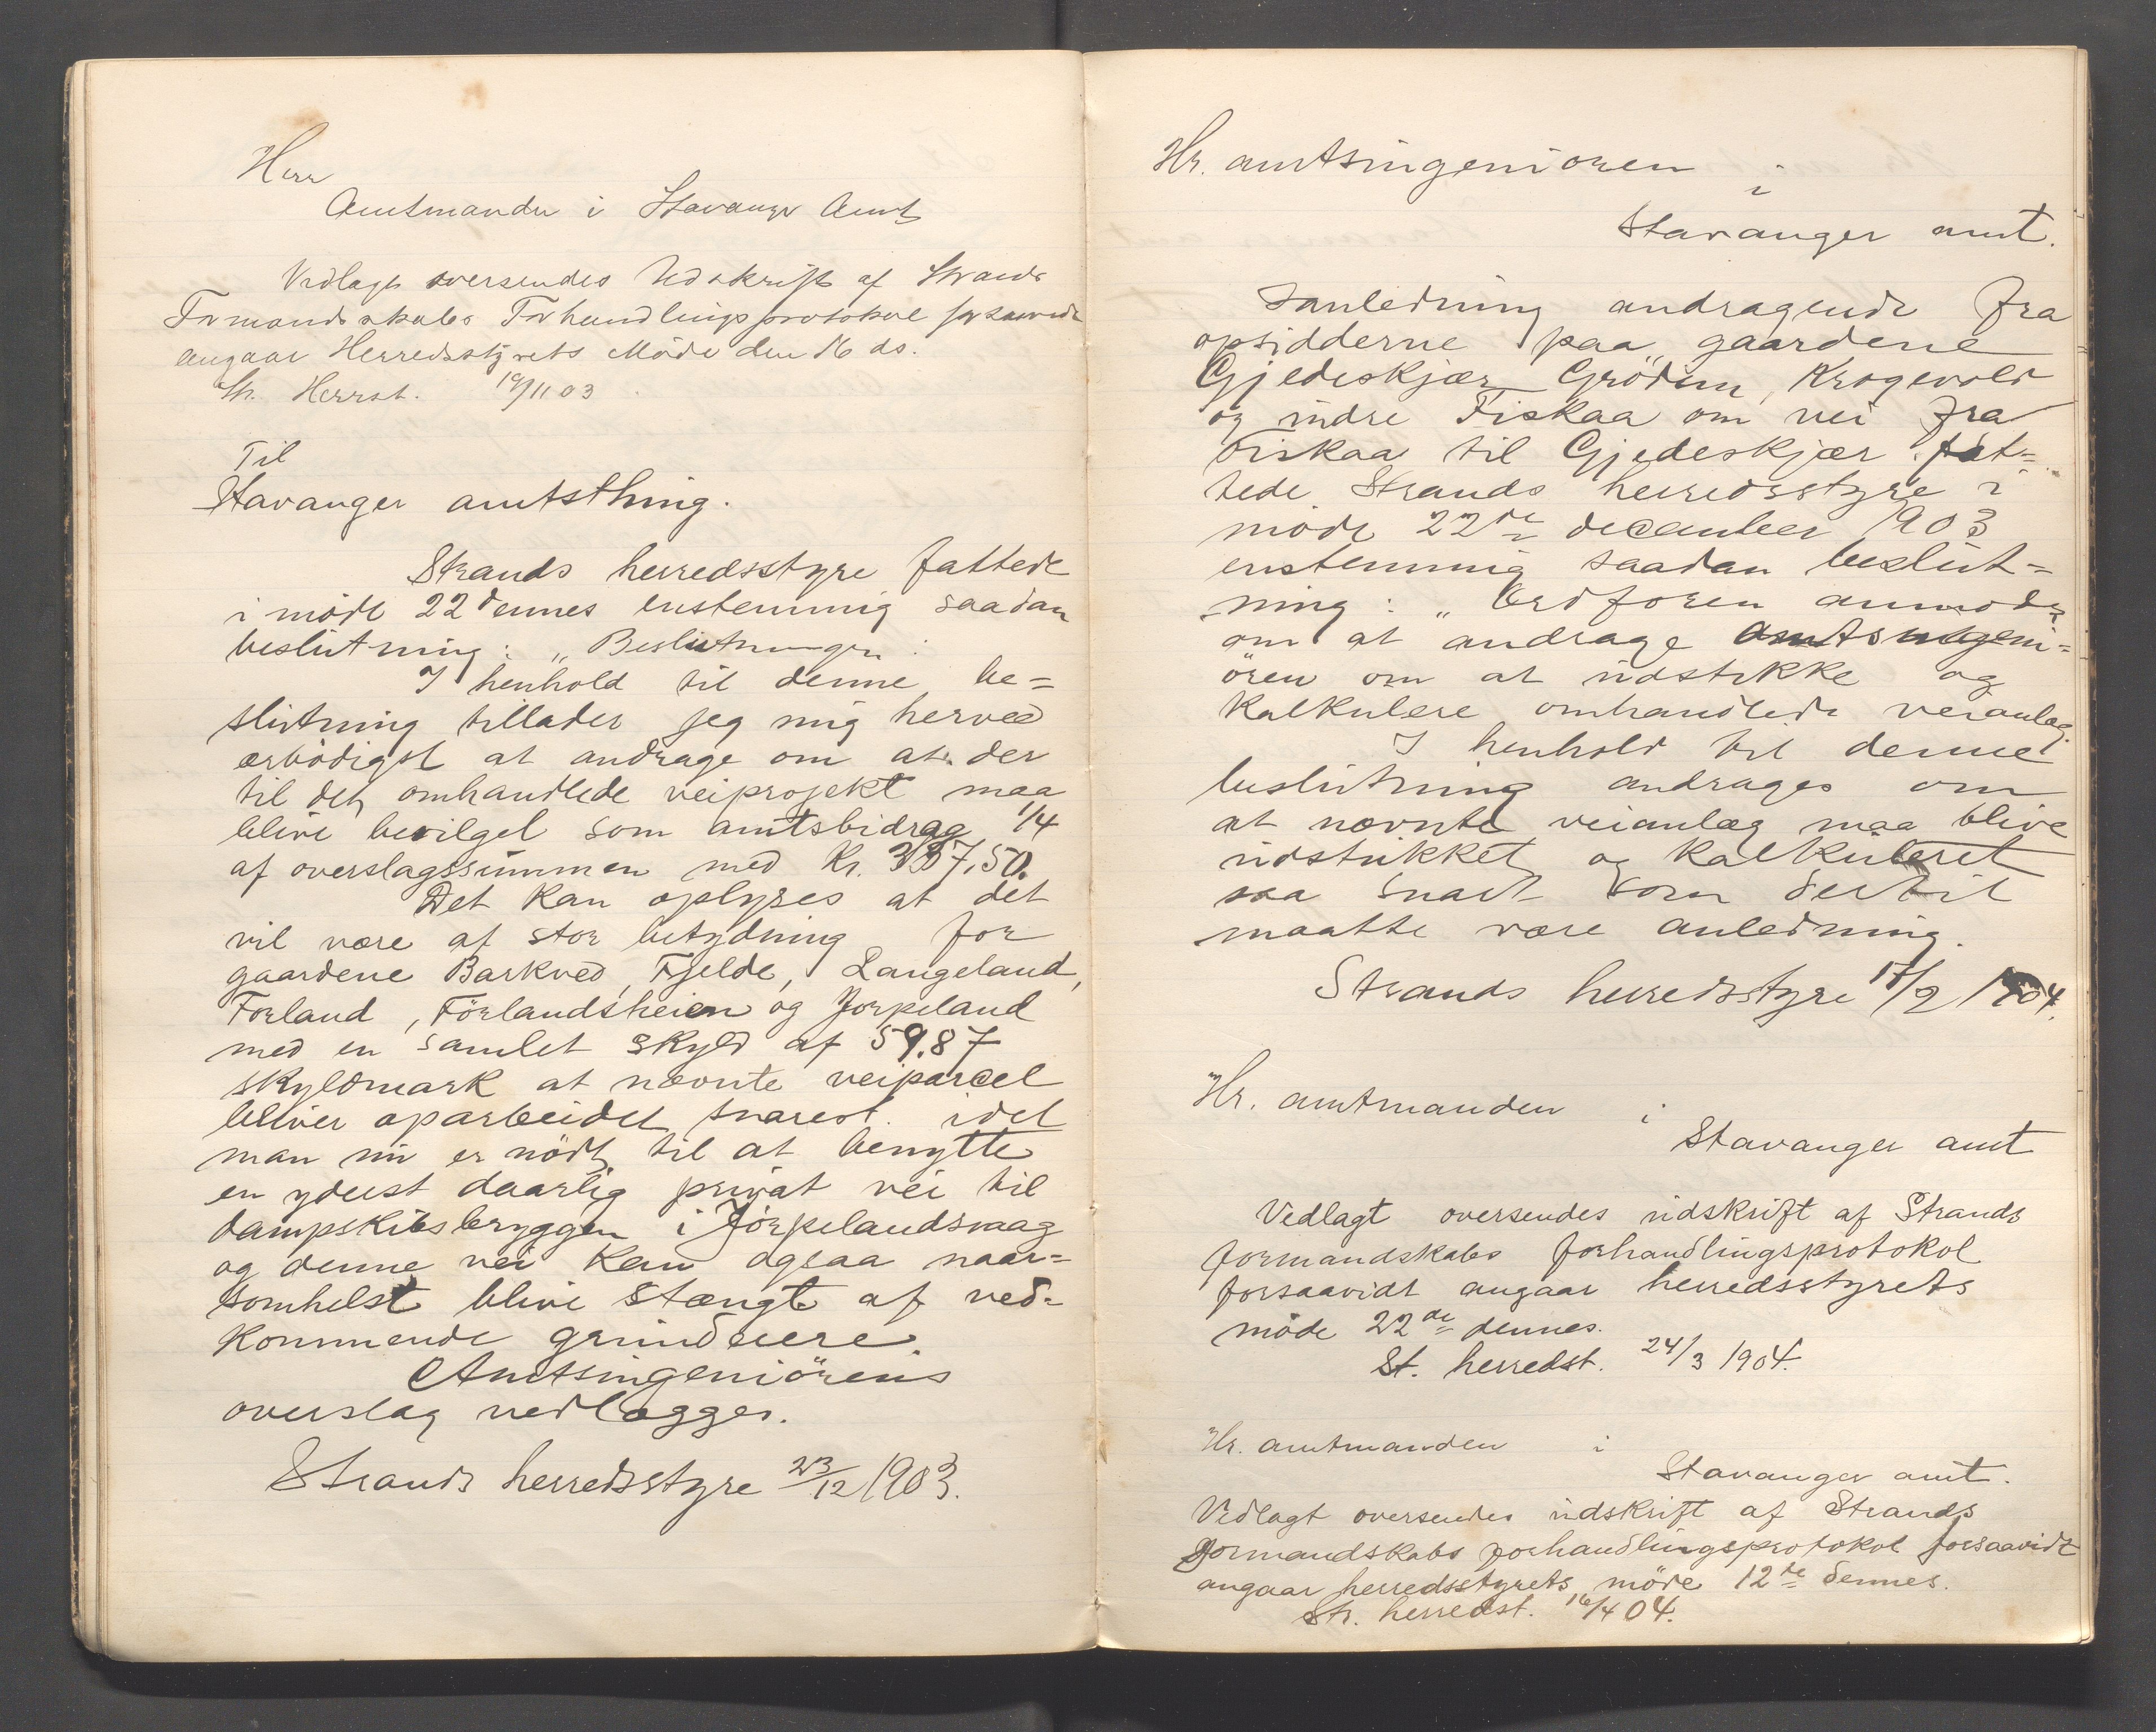 Herr
Amtmanden i Stavanger Amt
Vedlagt oversendes Udskrift af Strands
Formandskabs Forhandlingsprotokol forsaavidt
angaar Herredsstyrets Möde den 16 ds.
St. Herrst. 19/11 03
Til
Stavanger amtsthing.
Strands herredsstyre fattede
i möde 22 dennes enstemmig saadan
beslutning: „Beslutningen
I henhold til denne be=
slutning tillader jeg mig herved
ærbödigst at andrage om at der
til det omhandlede veiprojekt maa
blive bevilget som amtsbidrag 1/4
af overslagssummen med Kr. 337,50.
Det kan oplyses at det
vil være af stor betydning for
gaardene Barkved, Fjelde, Langeland,
Forland, Förlandsheien og Jorpeland
med en samlet skyld af 59.87
skyldmark at nævnte veiparcel
bliver oparbeidet snarest. idet
man nu er nödt til at benytte
en yderst daarlig privat vei til
dampskibsbryggen i Jörpelandsvaag
og denne vei kan ogsaa naar=
somhelst blive stængt af ved=
kommende grundeiere.
Amtsingeniörens
overslag vedlægges.
Strands herredsstyre 23/12 1903.
Hr. amtsingenioren
i
Stavanger amt.
I anledning andragende fra
opsidderne paa gaardene
Gjedeskjær, Grödem, Krogevold
og indre Fiskaa om vei fra
Fiskaa til Gjedeskjær fat=
tede Strands herredsstyre i
möde 22de december 1903
enstemmig saadan beslut=
ning: „Ordforen anmodes
om at andrage amtsingeni=
ören om at udstikke og
kalkulere omhandlede veianlæg.
I henhold til denne
beslutning andrages om
at nævnte veianlæg maa blive
udstukket og kalkuleret
saa snart som dertil
maatte være anledning.
Strands herredsstyre 17/2 1904.
Hr. amtmanden i
Stavanger amt
Vedlagt oversendes udskrift af Strands
formandskabs forhandlingsprotokol
forsaavidt angaar herredsstyrets
möde 22de dennes.
St. herredst. 24/3 1904.
Hr. amtmanden i
Stavanger amt.
Vedlagt oversendes udskrift af Strands
formandskabs forhandlingsprotokol forsaavidt
angaar herredsstyrets möde 12te dennes.
Str. herredst. 16/4 04.